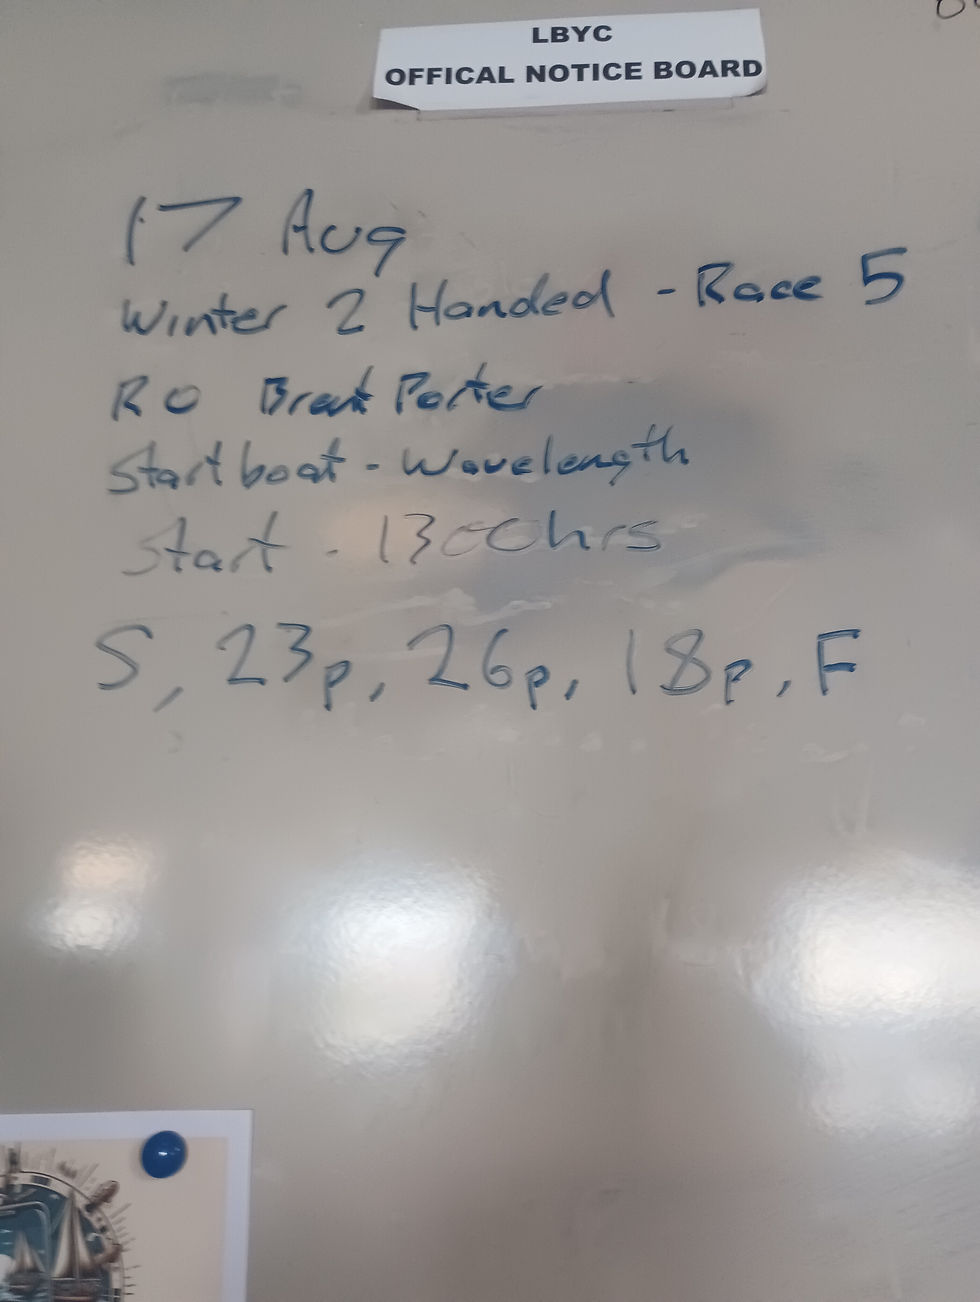 LBYC
OFFICAL NOTICE BOARD
17 Aug
Winter 2 Handed - Race 5
RO Brent Porter
Start boat - Wavelength
Start - 1300hrs
S, 23p, 26p, 18p, F